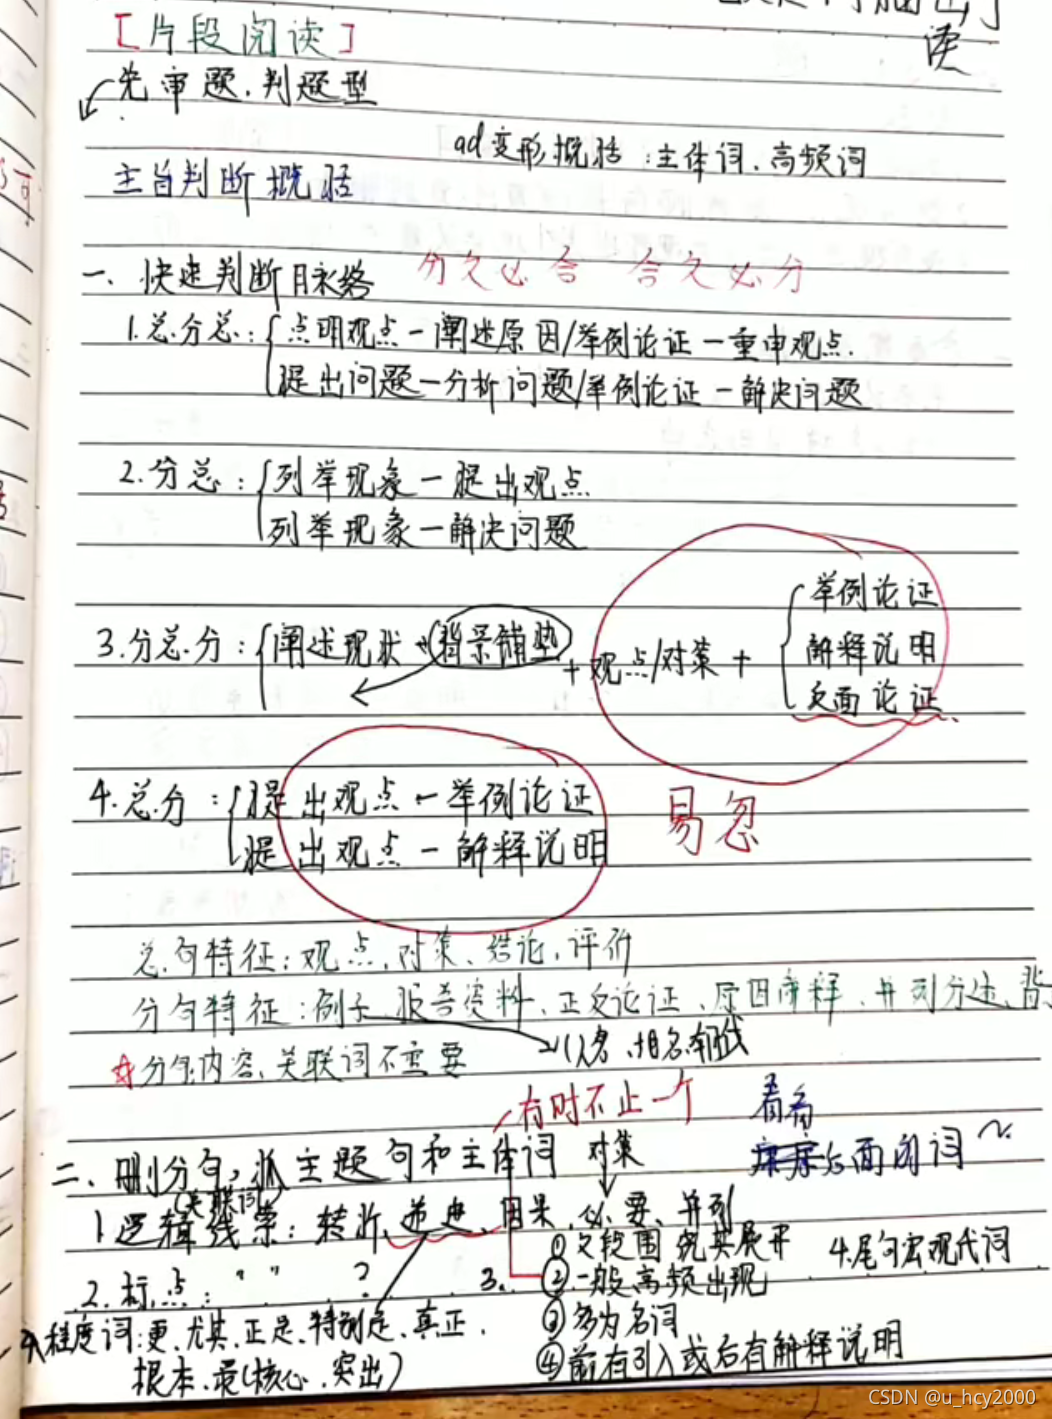 读
[片段阅读]
先审题.判题型
ad变形概括:主体词、高频词
主旨判断概括
一、快速判断脉络 分久必合 合久必分
1.总.分总:{点明观点-阐述原因/举例论证-重申观点.
提出问题-分析问题/举例论证-解决问题
2.分总:{列举现象-提出观点
列举现象-解决问题
举例论证
3.分总.分:{阐述现状 背景铺垫 + 观点/对策 + { 解释说明
反面论证
4.总.分:{提出观点-举例论证 易忽
提出观点-解释说明
总句特征:观点、对策、结论,评价
分句特征:例子、报告资料、正反论证、原因解释、并列分述、背
人名、
☆分句内容、关联词不重要
有时不止一个 看看
二、删分句,抓主题句和主体词 对策 后面闭词
(关联词)
1.逻辑线索:转折、递进、因果、必要、并列
①文段围绕其展开 4.尾句宏观代词
2.标点:" " ? 3. ②一般高频出现
程度词:更、尤其、正是、特别是、真正. ③多为名词
根本、最(核心、突出) ④前有引入或后有解释说明
CSDN @u_hcy2000